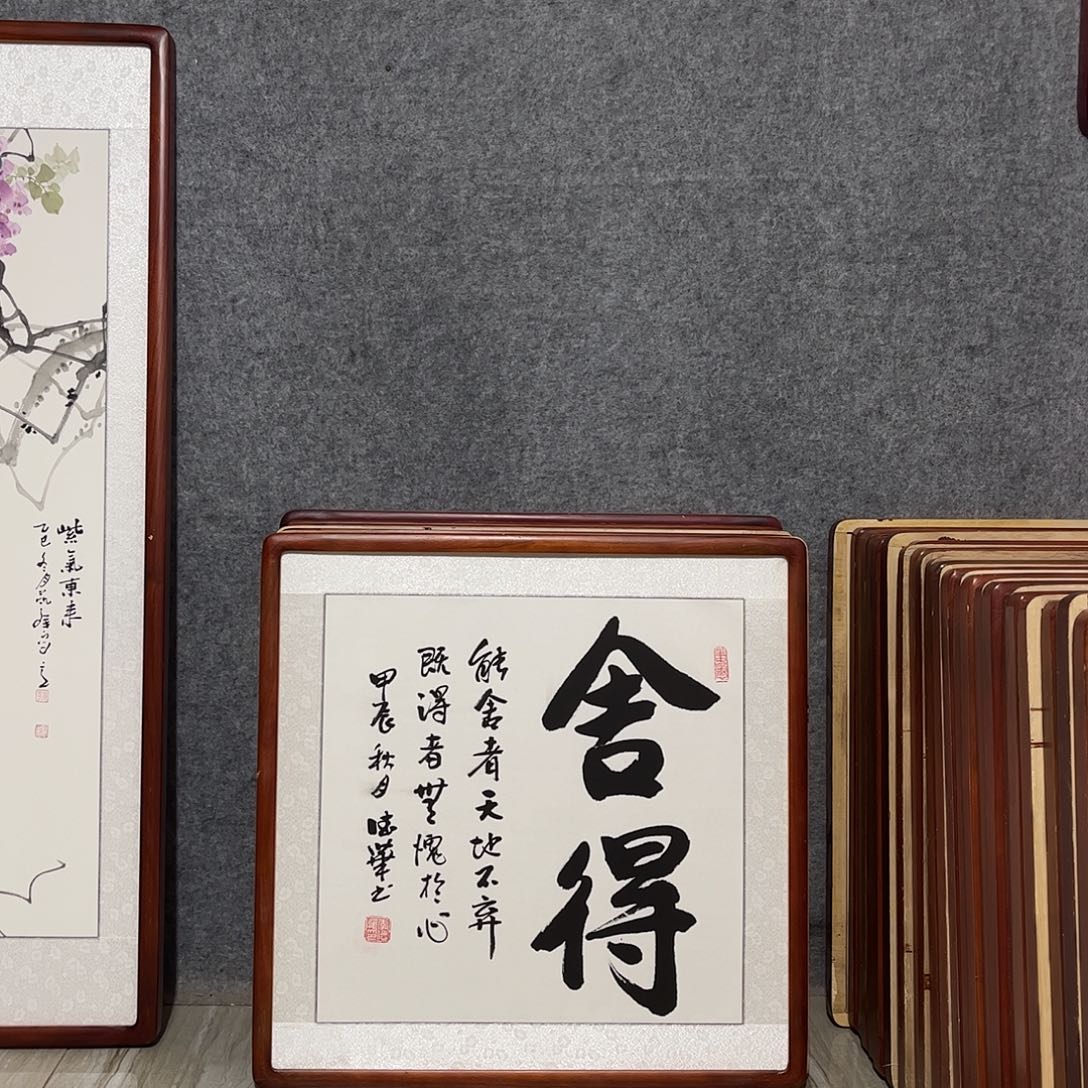 舍得
能舍者天地不弃
既得者無愧於心
甲辰秋月
紫氣東来
乙巳冬月